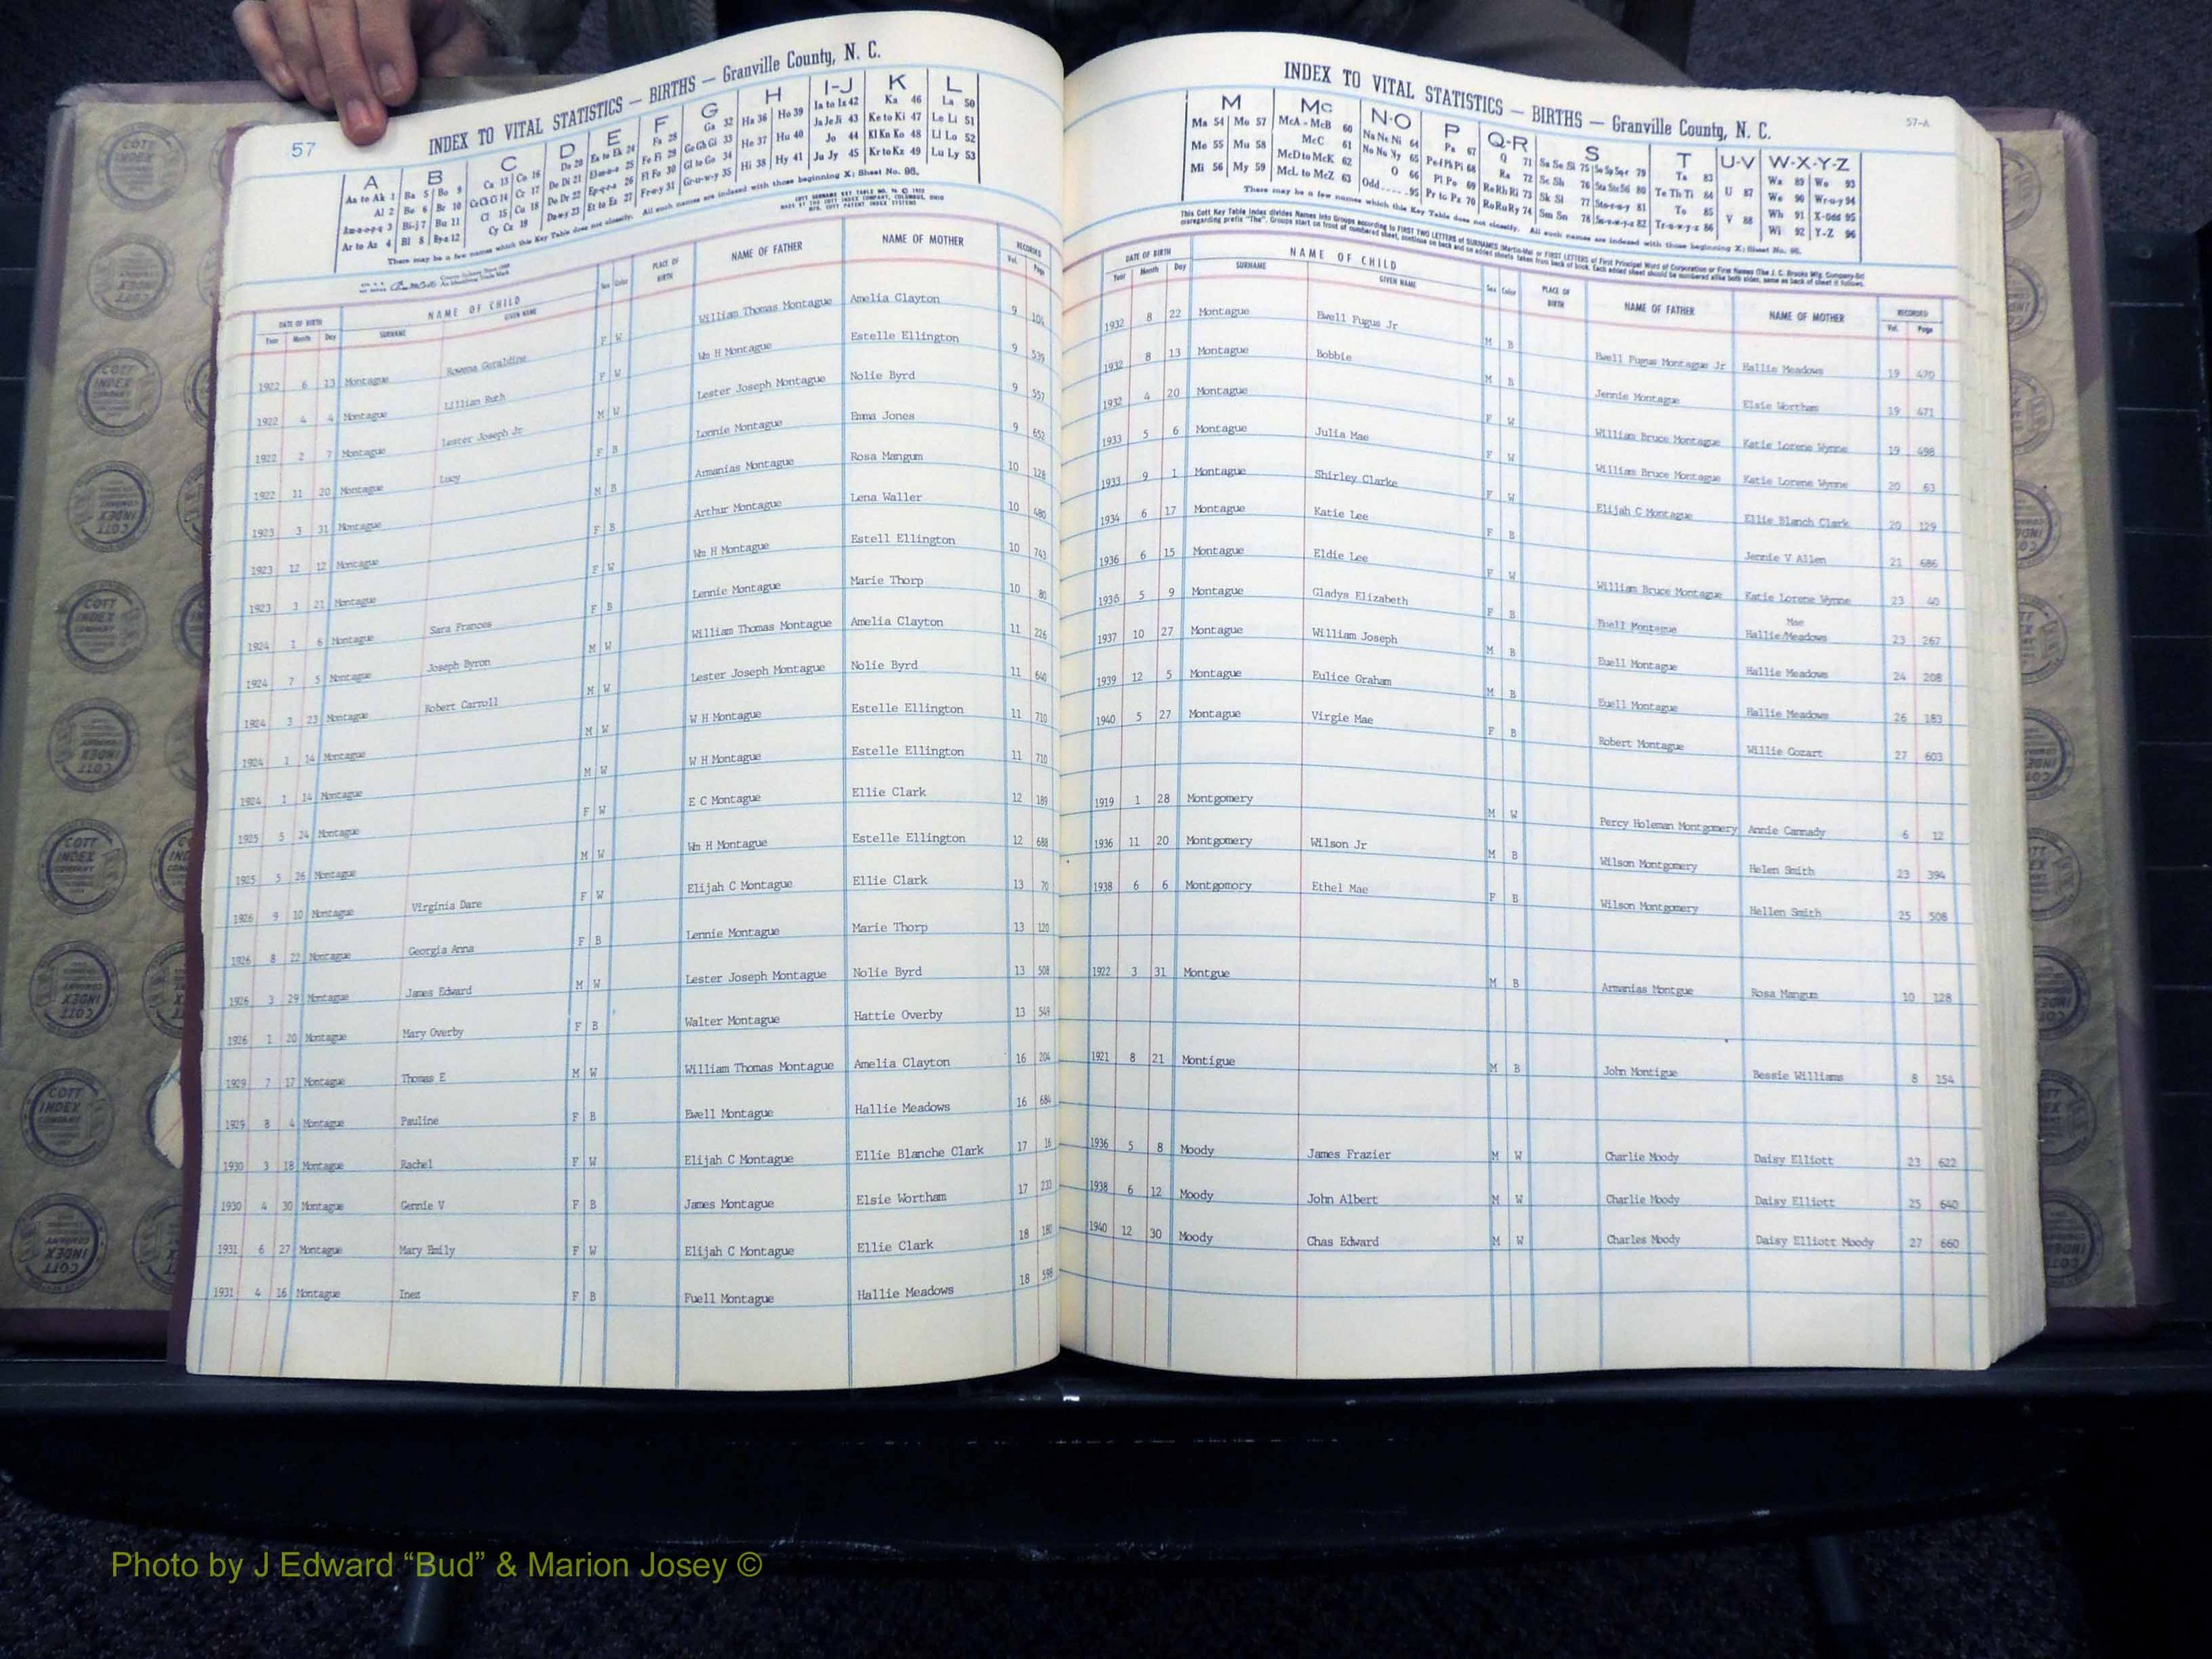 57
INDEX TO VITAL STATISTICS — BIRTHS — Granville County, N. C.
A B C D E F G H I-J K L
Aa to Ak 1 Ba 5 Bo 9 Ca 13 Co 16 Da 20 Ea to Ek 24 Fa 28 Ga 32 Ha 36 Ho 39 Ia to Iz 42 Ka 46 La 50
Al 2 Be 6 Br 10 Ce Ch Ci 14 Cr 17 De Di 21 Fe Fi 29 Ge Gh Gi 33 He 37 Hu 40 Ja Je Ji 43 Ke to Ki 47 Le Li 51
Bi-j 7 Bu 11 Cl 15 Cu 18 Do Dr 22 Fl Fo 30 Gl to Go 34 Hi 38 Hy 41 Jo 44 Kl Kn Ko 48 Ll Lo 52
Ar to Az 4 Bl 8 By-z 12 Cy Cz 19 Du-w-y 23 Et to Ez 27 Fr-u-y 31 Gr-u-w-y 35 Ju Jy 45 Kr to Kz 49 Lu Ly 53
There may be a few names which this Key Table does not classify. All such names are indexed with those beginning X; Sheet No. 95.
DATE OF BIRTH NAME OF CHILD Sex Color PLACE OF BIRTH NAME OF FATHER NAME OF MOTHER RECORDED
Year Month Day SURNAME GIVEN NAME Vol. Page
1922 6 13 Montague Rowena Geraldine F W William Thomas Montague Amelia Clayton 9 104
1922 4 4 Montague Lillian Ruth F W Wm H Montague Estelle Ellington 9 539
1922 2 7 Montague Lester Joseph Jr M W Lester Joseph Montague Nolie Byrd 9 557
1922 11 20 Montague Lucy F B Lonnie Montague Emma Jones 9 652
1923 3 31 Montague M B Armanias Montague Rosa Mangum 10 128
1923 12 12 Montague F B Arthur Montague Lena Waller 10 480
1923 3 21 Montague F W Wm H Montague Estell Ellington 10 743
1924 1 6 Montague Sara Frances F B Lennie Montague Marie Thorp 10 80
1924 7 5 Montague Joseph Byron M W William Thomas Montague Amelia Clayton 11 226
1924 3 23 Montague Robert Carroll M W Lester Joseph Montague Nolie Byrd 11 640
1924 1 14 Montague M W W H Montague Estelle Ellington 11 710
1924 1 14 Montague M W W H Montague Estelle Ellington 11 710
1925 5 24 Montague F W E C Montague Ellie Clark 12 189
1925 5 26 Montague M W Wm H Montague Estelle Ellington 12 688
1926 9 10 Montague Virginia Dare F W Elijah C Montague Ellie Clark 13 70
1926 8 22 Montague Georgia Anna F B Lennie Montague Marie Thorp 13 120
1926 3 29 Montague James Edward M W Lester Joseph Montague Nolie Byrd 13 508
1926 1 20 Montague Mary Overby F B Walter Montague Hattie Overby 13 549
1929 7 17 Montague Thomas E M W William Thomas Montague Amelia Clayton 16 204
1929 8 4 Montague Pauline F B Ewell Montague Hallie Meadows 16 684
1930 3 18 Montague Rachel F W Elijah C Montague Ellie Blanche Clark 17 16
1930 4 30 Montague Gernie V F B James Montague Elsie Wortham 17 233
1931 6 27 Montague Mary Emily F W Elijah C Montague Ellie Clark 18 180
1931 4 16 Montague Inez F B Fuell Montague Hallie Meadows 18 598
57-A
INDEX TO VITAL STATISTICS — BIRTHS — Granville County, N. C.
M Mc N-O P Q-R S T U-V W-X-Y-Z
Ma 54 Mo 57 McA - McB 60 Na Ne Ni 64 Pa 67 Q 71 Sa Se Si 75 So Sp Sq-r 79 Ta 83 U 87 Wa 89 Wo 93
Me 55 Mu 58 McC 61 No Nu Ny 65 Pe-f Ph Pi 68 Ra 72 Sc Sh 76 Sta Ste Sti 80 Te Th Ti 84 V 88 We 90 Wr-u-y 94
Mi 56 My 59 McD to McK 62 O 66 Pl Po 69 Re Rh Ri 73 Sk Sl 77 Sto-r-u-y 81 To 85 Wh 91 X-Odd 95
McL to McZ 63 Odd.....95 Pr to Pz 70 Ro Ru Ry 74 Sm Sn 78 Su-v-w-y-z 82 Tr-u-w-y-z 86 Wi 92 Y-Z 96
There may be a few names which this Key Table does not classify. All such names are indexed with those beginning X; Sheet No. 95.
DATE OF BIRTH NAME OF CHILD Sex Color PLACE OF BIRTH NAME OF FATHER NAME OF MOTHER RECORDED
Year Month Day SURNAME GIVEN NAME Vol. Page
1932 8 22 Montague Ewell Fugus Jr M B Ewell Fugus Montague Jr Hallie Meadows 19 470
1932 8 13 Montague Bobbie M B Jennie Montague Elsie Wortham 19 471
1932 4 20 Montague F W William Bruce Montague Katie Lorene Wynne 19 498
1933 5 6 Montague Julia Mae F W William Bruce Montague Katie Lorene Wynne 20 63
1933 9 1 Montague Shirley Clarke F W Elijah C Montague Ellie Blanch Clark 20 129
1934 6 17 Montague Katie Lee F B Jennie V Allen 21 686
1936 6 15 Montague Eldie Lee F W William Bruce Montague Katie Lorene Wynne 23 40
1936 5 9 Montague Gladys Elizabeth F B Euell Montague Hallie/Meadows Mae 23 267
1937 10 27 Montague William Joseph M B Euell Montague Hallie Meadows 24 208
1939 12 5 Montague Eulice Graham M B Euell Montague Hallie Meadows 26 183
1940 5 27 Montague Virgie Mae F B Robert Montague Willie Cozart 27 603
1919 1 28 Montgomery M W Percy Holeman Montgomery Annie Cannady 6 12
1936 11 20 Montgomery Wilson Jr M B Wilson Montgomery Helen Smith 23 394
1938 6 6 Montgomory Ethel Mae F B Wilson Montgomery Hellen Smith 25 508
1922 3 31 Montgue M B Armanias Montgue Rosa Mangum 10 128
1921 8 21 Montigue M B John Montigue Bessie Williams 8 154
1936 5 8 Moody James Frazier M W Charlie Moody Daisy Elliott 23 622
1938 6 12 Moody John Albert M W Charlie Moody Daisy Elliott 25 640
1940 12 30 Moody Chas Edward M W Charles Moody Daisy Elliott Moody 27 660
Photo by J Edward “Bud” & Marion Josey ©